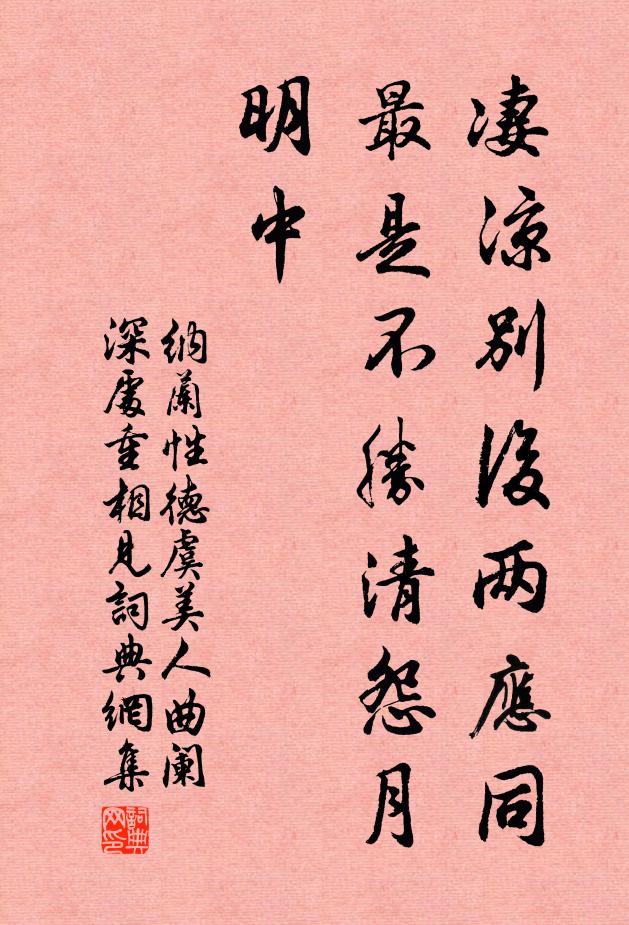 凄凉別後两應同
最是不勝清怨月
明中
納蘭性德虞美人曲阑
深處重相見詞典網集
詞典
网印